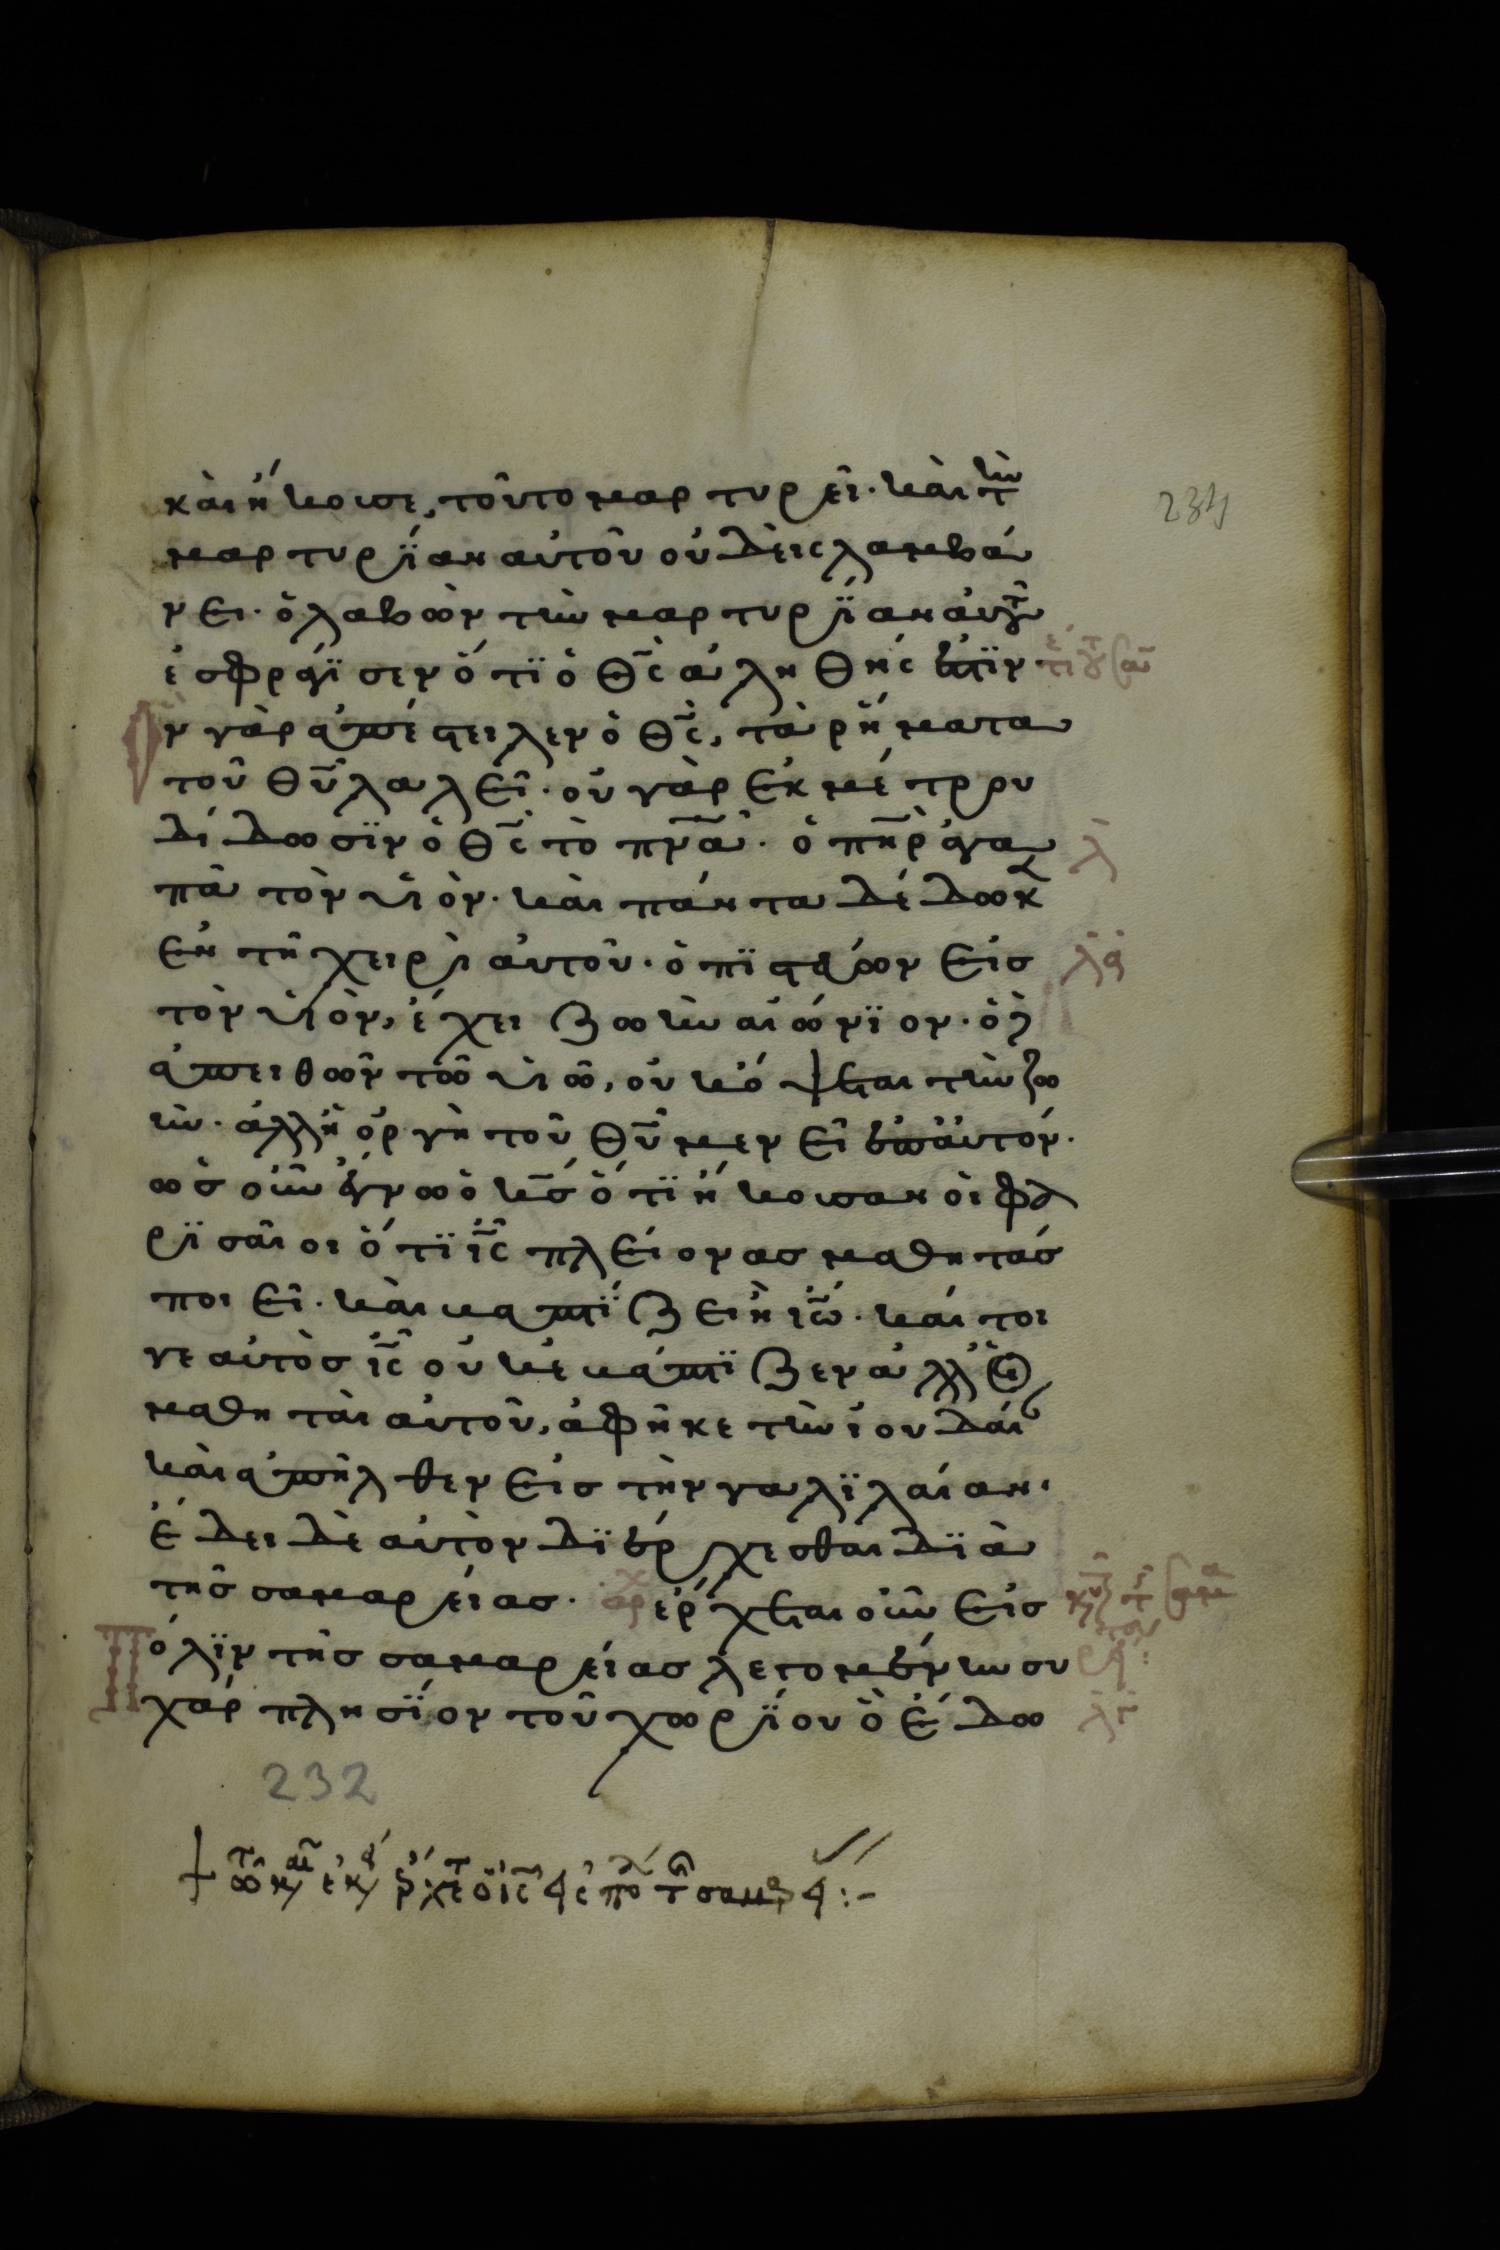 καὶ ἤκουσε, τοῦτο μαρτυρεῖ· καὶ τὴν
μαρτυρΐαν αὐτοῦ οὐδεὶς λαμβά
νει· ὁ λαβὼν τὴν μαρτυρΐαν αὐτοῦ
ἐσφράγϊσεν ὅτϊ ὁ θ̅ς̅ ἀληθής ἐστϊν
ν γὰρ ἀπέστειλεν ὁ θ̅ς̅, τὰ ῥήματα
τοῦ θ̅υ̅ λαλεῖ· οὐ γὰρ ἐκ μέτρου
δίδωσϊν ὁ θ̅ς̅ τὸ π̅ν̅α̅· ὁ π̅η̅ρ̅ ἀγα
πᾶ τὸν υἱὸν· καὶ πάντα δέδωκεν
ἐν τῆ χειρὶ αὐτοῦ· ὁ πϊστεύων εἰσ
τὸν υἱὸν, ἔχει ζωὴν αἰώνϊον· ὁ δὲ
ἀπειθῶν τῶ υἱῶ, οὐκ ὄψεται τὴν ζω
ὴν· ἀλλ' ἡ ὀργὴ τοῦ θ̅υ̅ μενεῖ ἐπ' αὐτόν·
ὡσ οὖν ἔγνω ὁ κ̅σ̅ ὅτϊ ἤκουσαν οἱ φα
ρϊσαῖοι ὅτϊ ι̅ς̅ πλείονασ μαθητάσ
ποιεῖ· καὶ βαπτΐζει ἢ ι̅ω̅· καίτοι
γε αὐτὸσ ι̅ς̅ οὐκ ἐβάπτϊζεν ἀλλ' οἱ
μαθηταὶ αὐτοῦ, ἀφῆκε τὴν ἰουδαίαν
καὶ ἀπῆλθεν εἰσ τὴν γαλϊλαίαν·
ἔδει δὲ αὐτὸν δϊέρχεσθαι δϊὰ
τῆσ σαμαρείασ· ἔρχεται οὖν εἰσ
Πόλϊν τῆσ σαμαρείασ λεγομένην συ
χάρ πλησΐον τοῦ χωρΐου ὃ ἔδω
232